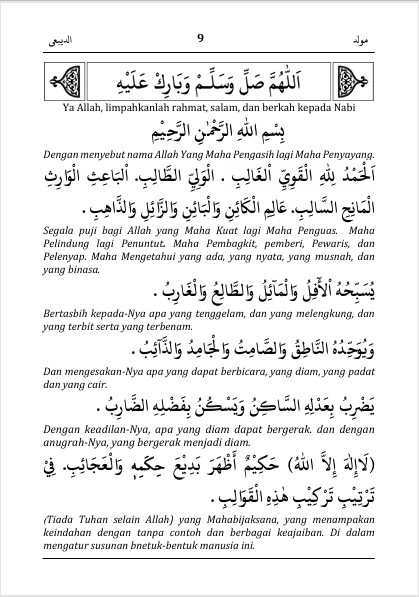 مولد 9 الديبعي
اَللّٰهُمَّ صَلِّ وَسَلِّمْ وَبَارِكْ عَلَيْهِ
Ya Allah, limpahkanlah rahmat, salam, dan berkah kepada Nabi
بِسْمِ اللهِ الرَّحْمٰنِ الرَّحِيْمِ
Dengan menyebut nama Allah Yang Maha Pengasih lagi Maha Penyayang.
اَلْحَمْدُ لِلّٰهِ الْقَوِيِّ الْغَالِبِ . الْوَلِيِّ الطَّالِبِ. الْبَاعِثِ الْوَارِثِ
الْمَانِحِ السَّالِبِ. عَالِمِ الْكَائِنِ وَالْبَائِنِ وَالزَّائِلِ وَالذَّاهِبِ .
Segala puji bagi Allah yang Maha Kuat lagi Maha Penguas. Maha
Pelindung lagi Penuntut. Maha Pembagkit, pemberi, Pewaris, dan
Pelenyap. Maha Mengetahui yang ada, yang nyata, yang musnah, dan
yang binasa.
يُسَبِّحُهُ الْأٰفِلُ وَالْمَآئِلُ وَالطَّالِعُ وَالْغَارِبُ .
Bertasbih kepada-Nya apa yang tenggelam, dan yang melengkung, dan
yang terbit serta yang terbenam.
وَيُوَحِّدُهُ النَّاطِقُ وَالصَّامِتُ وَالْجَامِدُ وَالذَّآئِبُ .
Dan mengesakan-Nya apa yang dapat berbicara, yang diam, yang padat
dan yang cair.
يَضْرِبُ بِعَدْلِهِ السَّاكِنُ وَيَسْكُنُ بِفَضْلِهِ الضَّارِبُ .
Dengan keadilan-Nya, apa yang diam dapat bergerak. dan dengan
anugrah-Nya, yang bergerak menjadi diam.
(لَاإِلٰهَ إِلاَّ اللهُ) حَكِيْمٌ أَظْهَرَ بَدِيْعَ حِكَمِهٖ وَالْعَجَائِبِ. فِيْ
تَرْتِيْبِ تَرْكِيْبِ هٰذِهِ الْقَوَالِبِ .
(Tiada Tuhan selain Allah) yang Mahabijaksana, yang menampakan
keindahan dengan tanpa contoh dan berbagai keajaiban. Di dalam
mengatur susunan bnetuk-bentuk manusia ini.